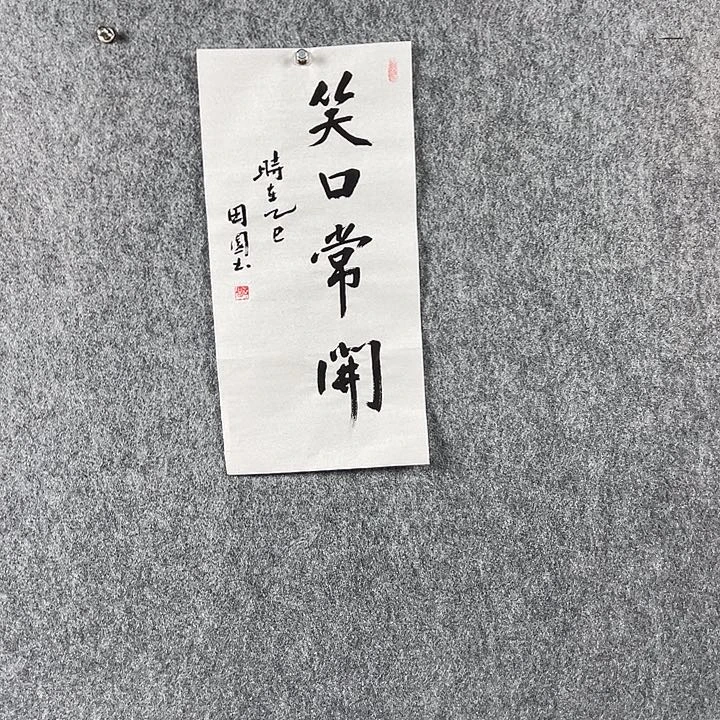 笑口常開
時在乙巳
田園书